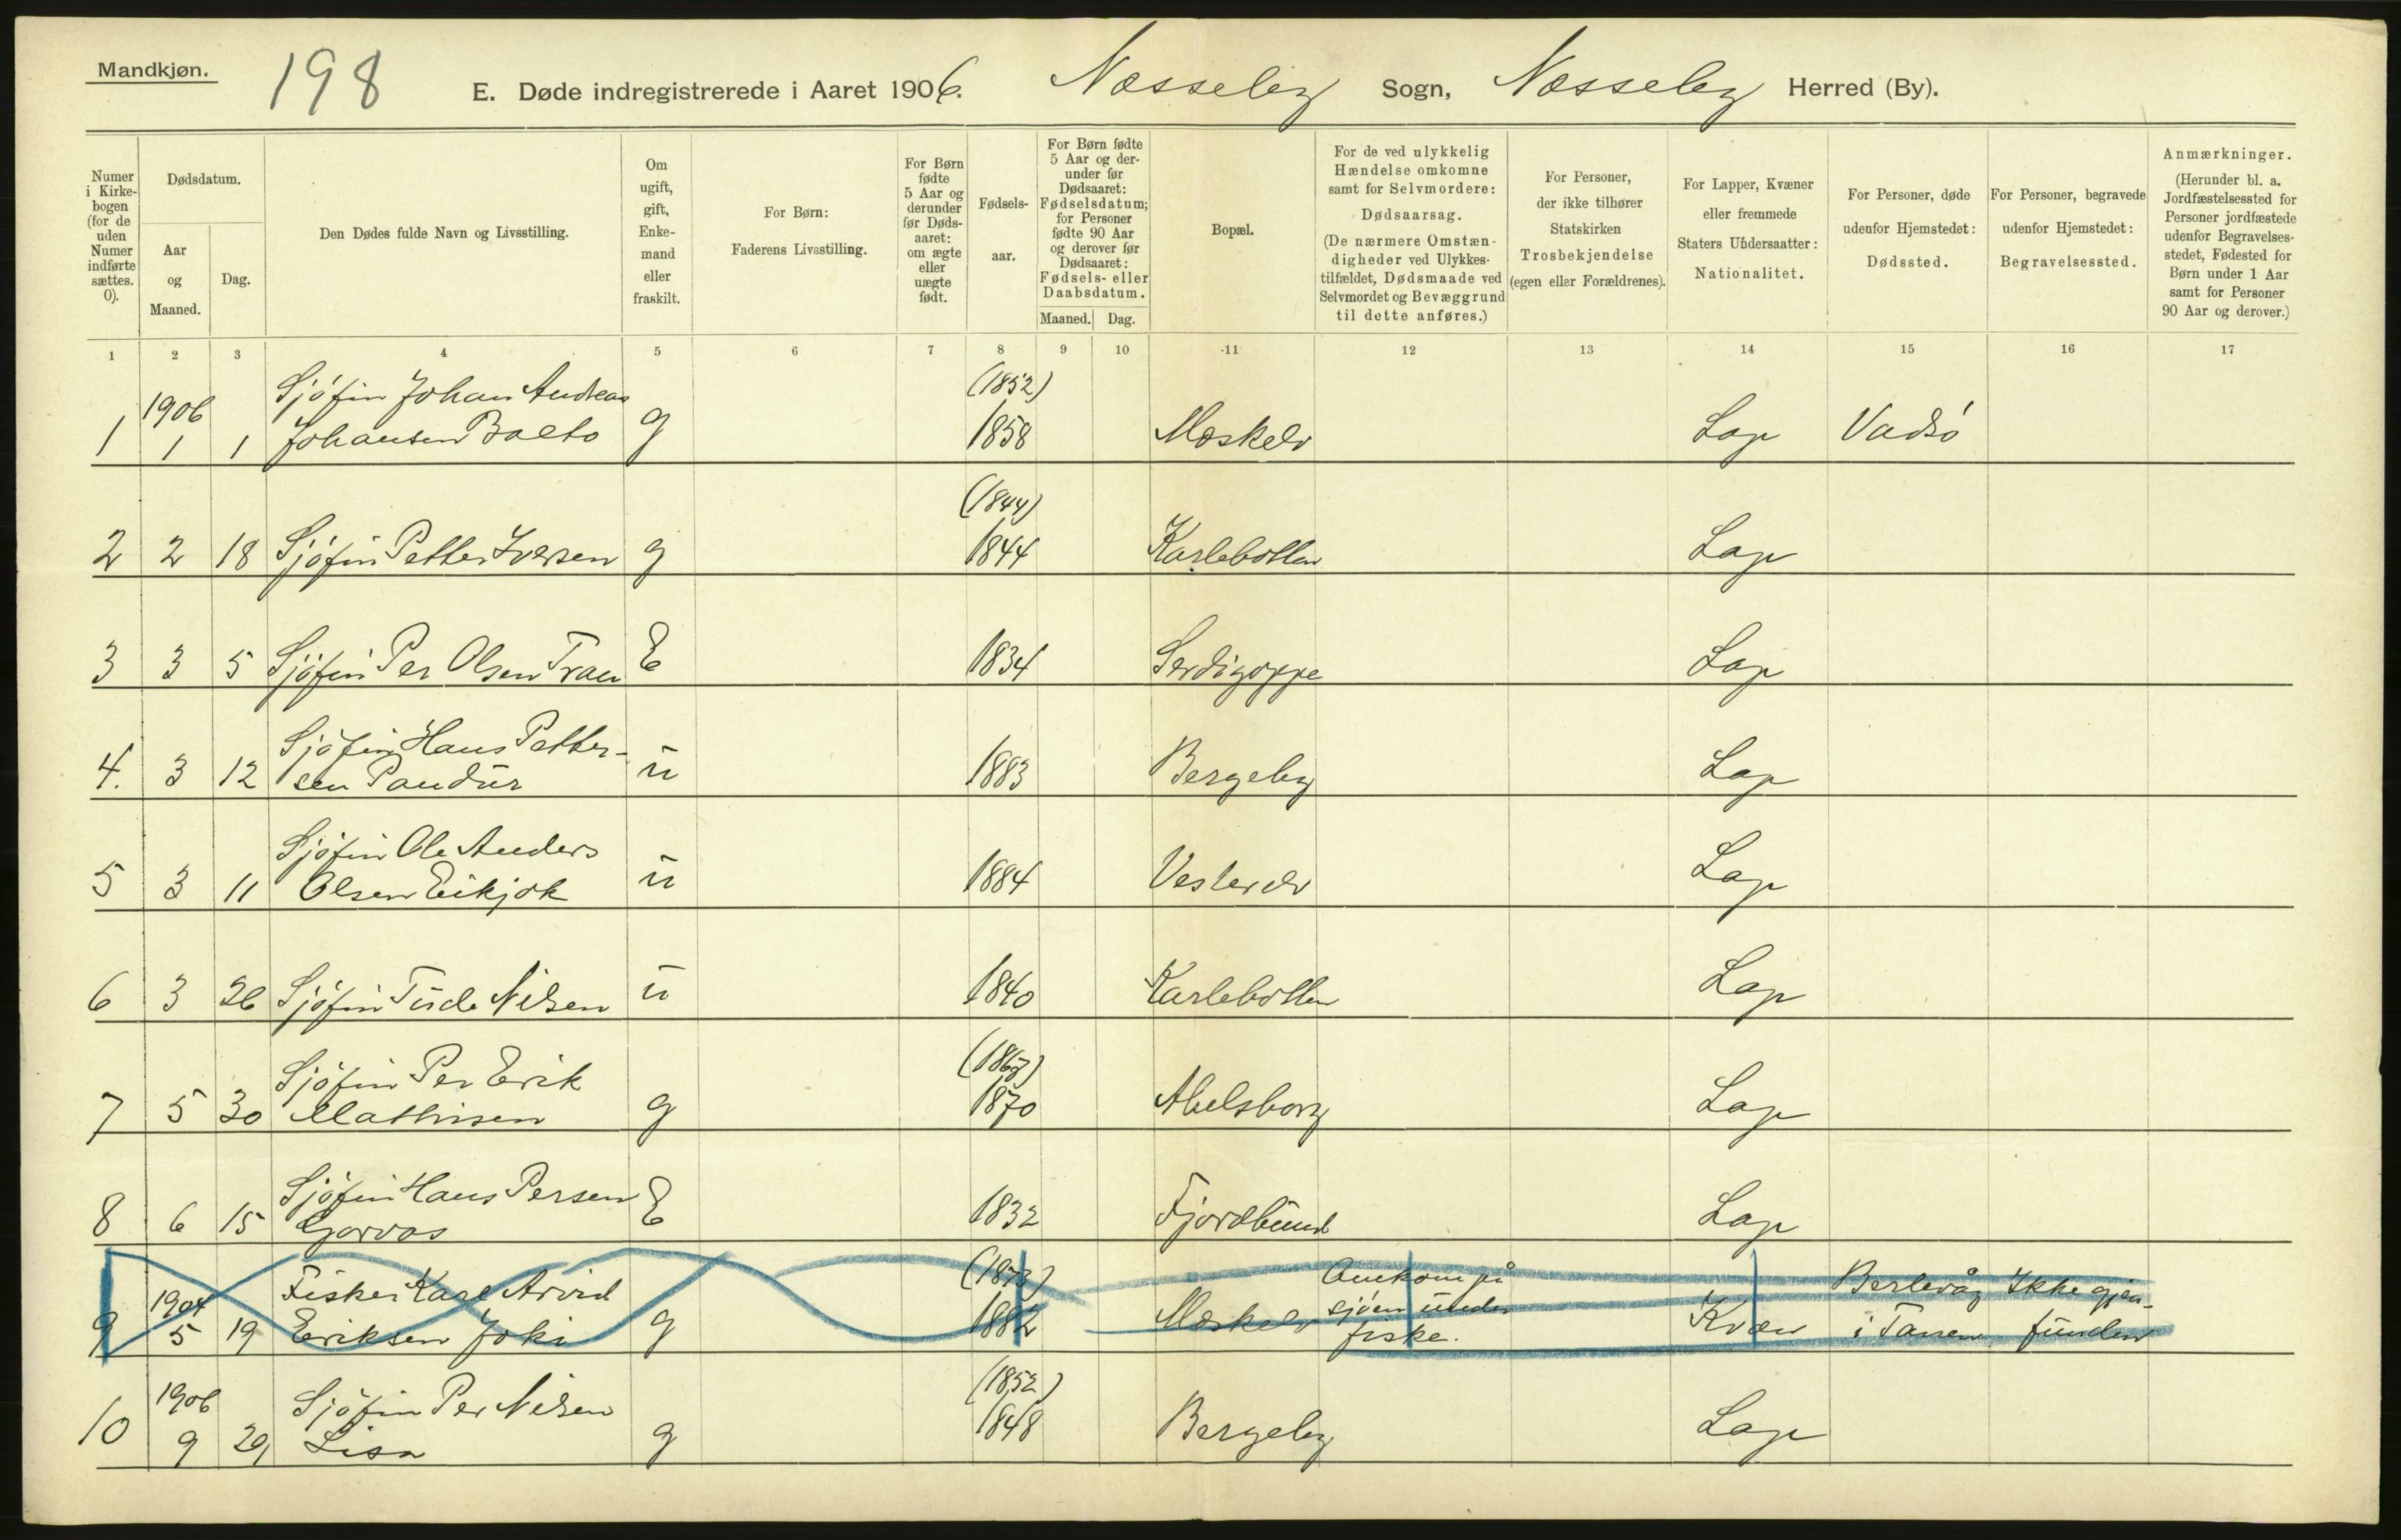 Mandkjøn.
198
E. Døde indregistrerede i Aaret 1906. Næsseby Sogn, Næsseby Herred (By).
Numer i Kirkebogen (for de uden Numer indførte sættes. 0).
Dødsdatum.
Aar og Maaned.
Dag.
Den Dødes fulde Navn og Livsstilling.
Om ugift, gift, Enkemand eller fraskilt.
For Børn: Faderens Livsstilling.
For Børn fødte 5 Aar og derunder før Dødsaaret: om ægte eller uægte født.
Fødselsaar.
For Børn fødte 5 Aar og derunder før Dødsaaret: Fødselsdatum; for Personer fødte 90 Aar og derover før Dødsaaret: Fødsels- eller Daabsdatum.
Maaned. Dag.
Bopæl.
For de ved ulykkelig Hændelse omkomne samt for Selvmordere: Dødsaarsag. (De nærmere Omstændigheder ved Ulykkestilfældet, Dødsmaade ved Selvmordet og Bevæggrund til dette anføres.)
For Personer, der ikke tilhører Statskirken Trosbekjendelse (egen eller Forældrenes).
For Lapper, Kvæner eller fremmede Staters Undersaatter: Nationalitet.
For Personer, døde udenfor Hjemstedet: Dødssted.
For Personer, begravede udenfor Hjemstedet: Begravelsessted.
Anmærkninger. (Herunder bl. a. Jordfæstelsessted for Personer jordfæstede udenfor Begravelsesstedet, Fødested for Børn under 1 Aar samt for Personer 90 Aar og derover.)
1 2 3 4 5 6 7 8 9 10 11 12 13 14 15 16 17
1906 Sjøfin Johan Andreas (1852)
1 1 1 Johansen Balto g 1858 Mæskelv Lap Vadsø
(1844)
2 2 18 Sjøfin Petter Iversen g 1844 Karlebotten Lap
3 3 5 Sjøfin Per Olsen Tran E 1834 Lap
Sjøfin Hans Petter-
4. 3 12 sen Pandur u 1883 Bergeby Lap
Sjøfin Ole Anders
5 3 11 Olsen Eikjok u 1884 Vesterelv Lap
6 3 26 Sjøfin Nilsen u 1840 Karlebotten Lap
Sjøfin Per Erik
7 5 30 Mathisen g 1870 Abelsborg Lap
Sjøfin Hans Persen
8 6 15 E 1832 Fjordbund Lap
1904 Fisker Karl Arvid (1873) Omkom på Berlevåg Ikke gjen-
9 5 19 Eriksen Joki g 1882 Mæskelv sjøen under Kvæn i Tanen funden
fiske.
1906 Sjøfin Per Nilsen (1852)
10 9 29 Lisa g 1848 Bergeby Lap